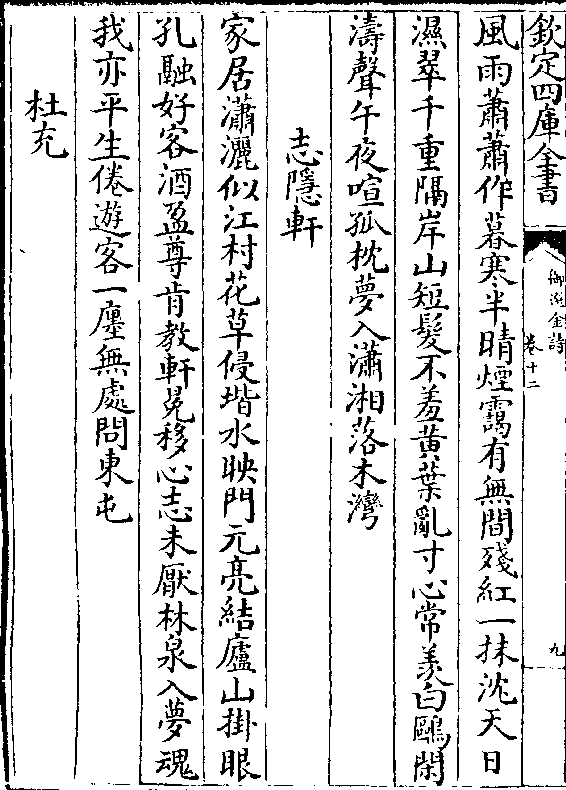 欽定四庫全書
御選金詩
卷十二
九
風雨蕭蕭作暮寒半晴煙靄有無間殘紅一抹沈天日
濕翠千重隔岸山短髮不羞黃葉亂寸心常羡白鷗閑
濤聲午夜喧孤枕夢入瀟湘落木灣
志隱軒
家居瀟灑似江村花草侵堦水映門元亮結廬山掛眼
孔融好客酒盈尊肯教軒冕移心志未厭林泉入夢魂
我亦平生倦遊客一廛無處問東屯
杜充